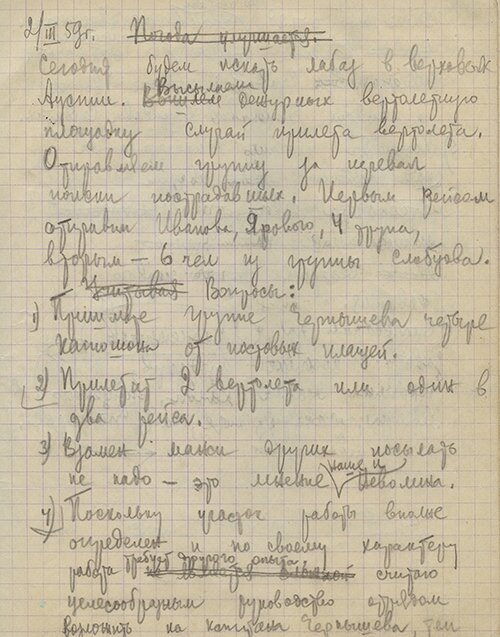 2/III 59г. Погода улучшается.
Сегодня будем искать лабаз в верховьях
Высылаем
Ауспии. Вышлем дежурных вертолетную
площадку случай прилета вертолета.
Отправляем группу за перевал
поиски пострадавших. Первым рейсом
отправим Иванова, Ярового, 4 трупа,
вторым – 6 чел из группы Слобцова.
Учитывая Вопросы:
1) Пришлите группе Чернышева четыре
капюшона от постовых плащей.
2) Прилетит 2 вертолета или один в
два рейса.
3) Взамен манси других посылать
наше и
не надо – это мнение Неволина.
4) Поскольку участок работы вполне
определен и по своему характеру
требует другого опыта
работа не считаю
целесообразным руководство отрядом
возложить на капитана Чернышева, тем